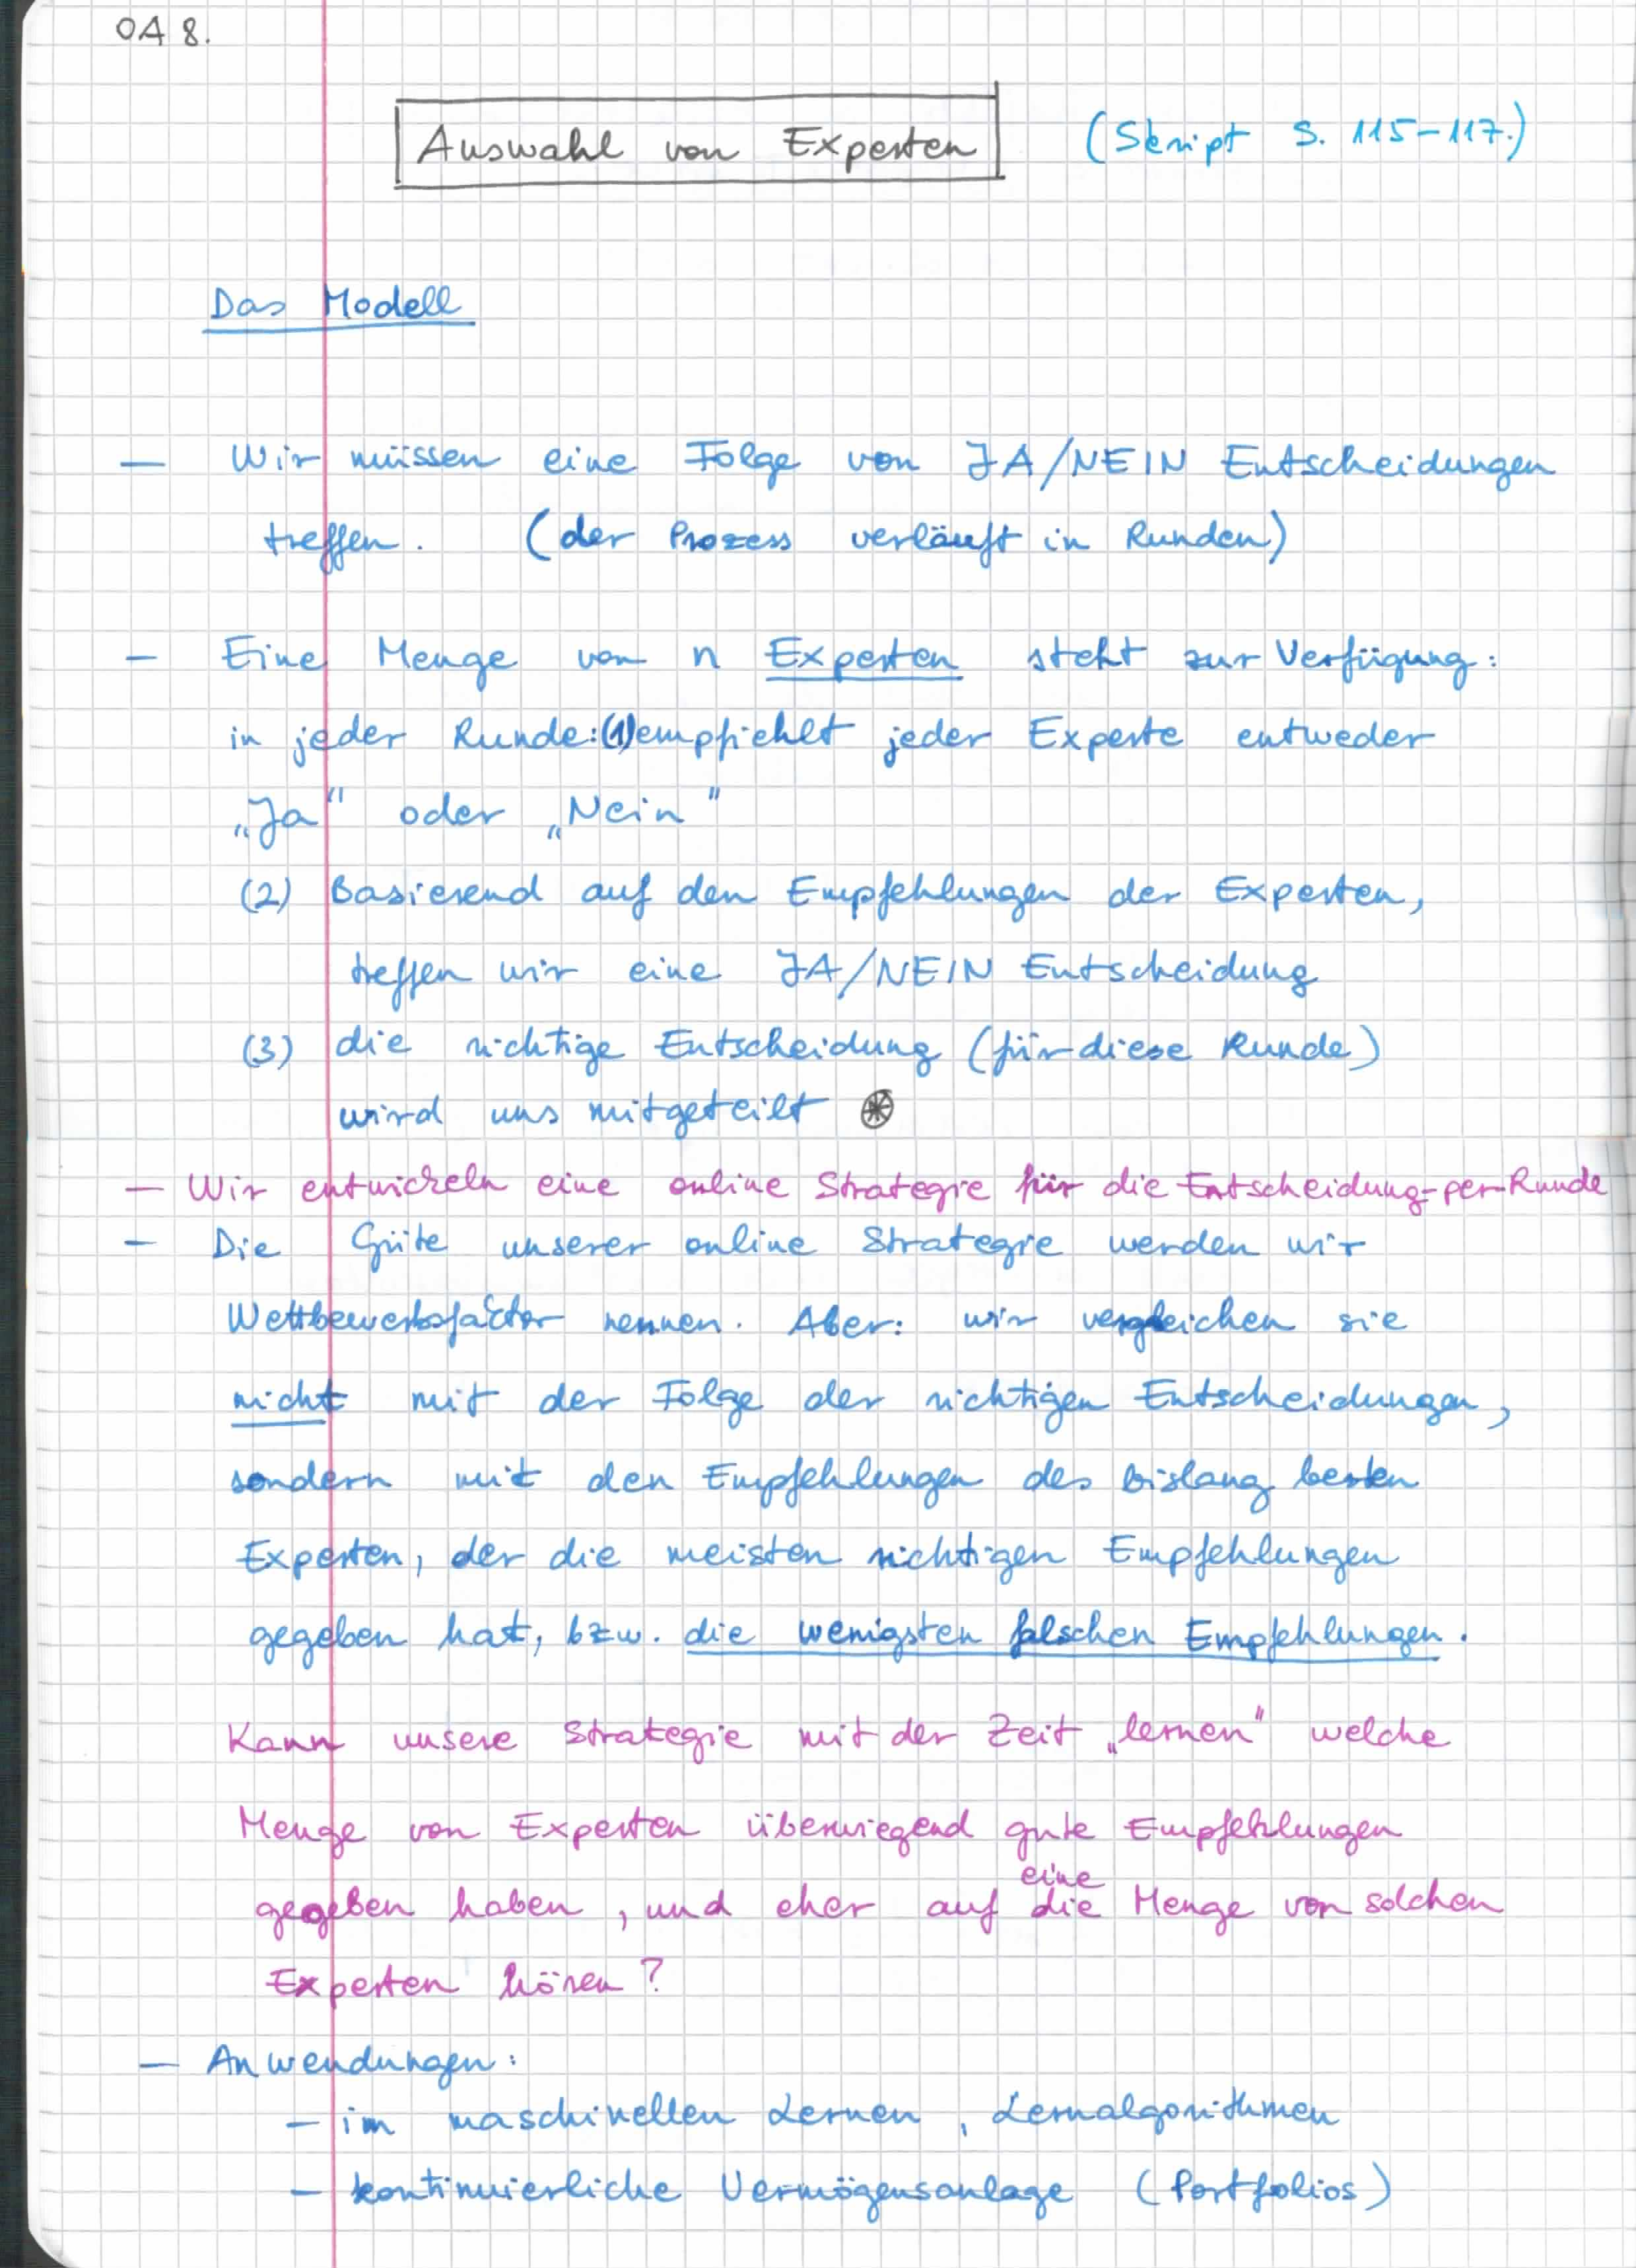 OA 8.
Auswahl von Experten (Skript S. 115-117.)
Das Modell
— Wir müssen eine Folge von JA/NEIN Entscheidungen
treffen. (der Prozess verläuft in Runden)
— Eine Menge von n Experten steht zur Verfügung:
in jeder Runde: (1) empfiehlt jeder Experte entweder
„Ja" oder „Nein"
(2) Basierend auf den Empfehlungen der Experten,
treffen wir eine JA/NEIN Entscheidung
(3) die richtige Entscheidung (für diese Runde)
wird uns mitgeteilt ⊛
— Wir entwickeln eine online Strategie für die Entscheidung-per-Runde
— Die Güte unserer online Strategie werden wir
Wettbewerbsfaktor nennen. Aber: wir vergleichen sie
nicht mit der Folge der richtigen Entscheidungen,
sondern mit den Empfehlungen des bislang besten
Experten, der die meisten richtigen Empfehlungen
gegeben hat, bzw. die wenigsten falschen Empfehlungen.
Kann unsere Strategie mit der Zeit „lernen" welche
Menge von Experten überwiegend gute Empfehlungen
eine
gegeben haben, und eher auf die Menge von solchen
Experten hören?
— Anwendungen:
— im maschinellen Lernen, Lernalgorithmen
— kontinuierliche Vermögensanlage (Portfolios)